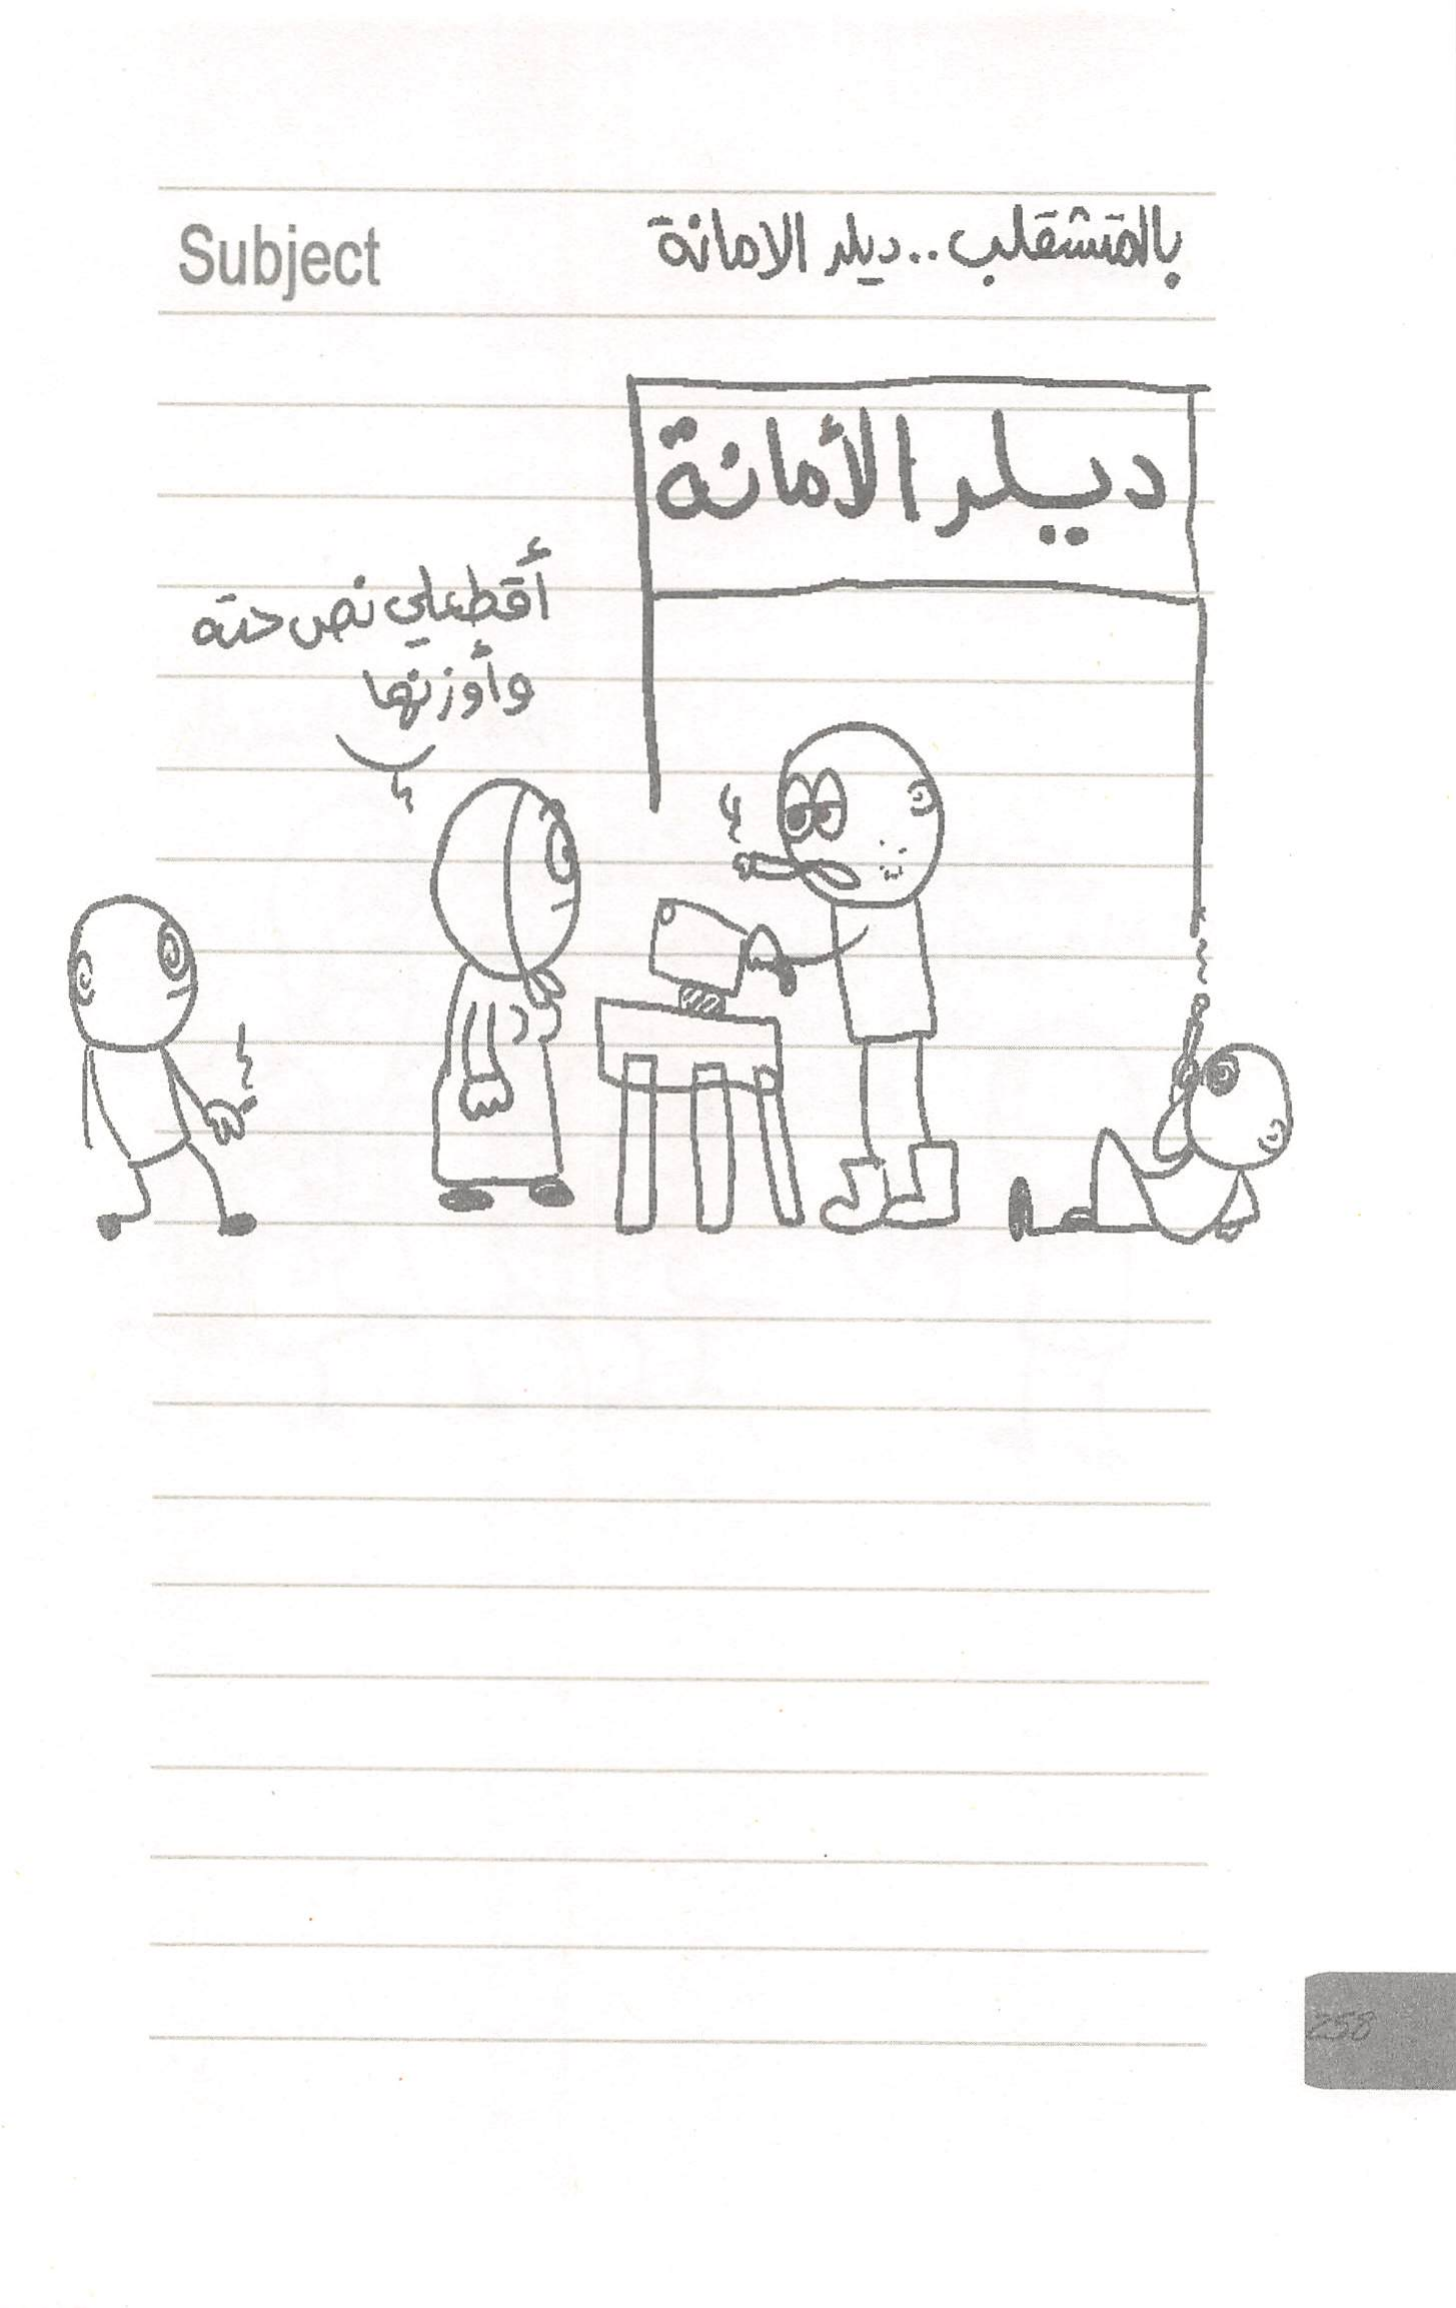 Subject
بالمتشقلب..ديلر الامانة
ديلر الأمانة
أقطعلي نص حته
وأوزنها
258